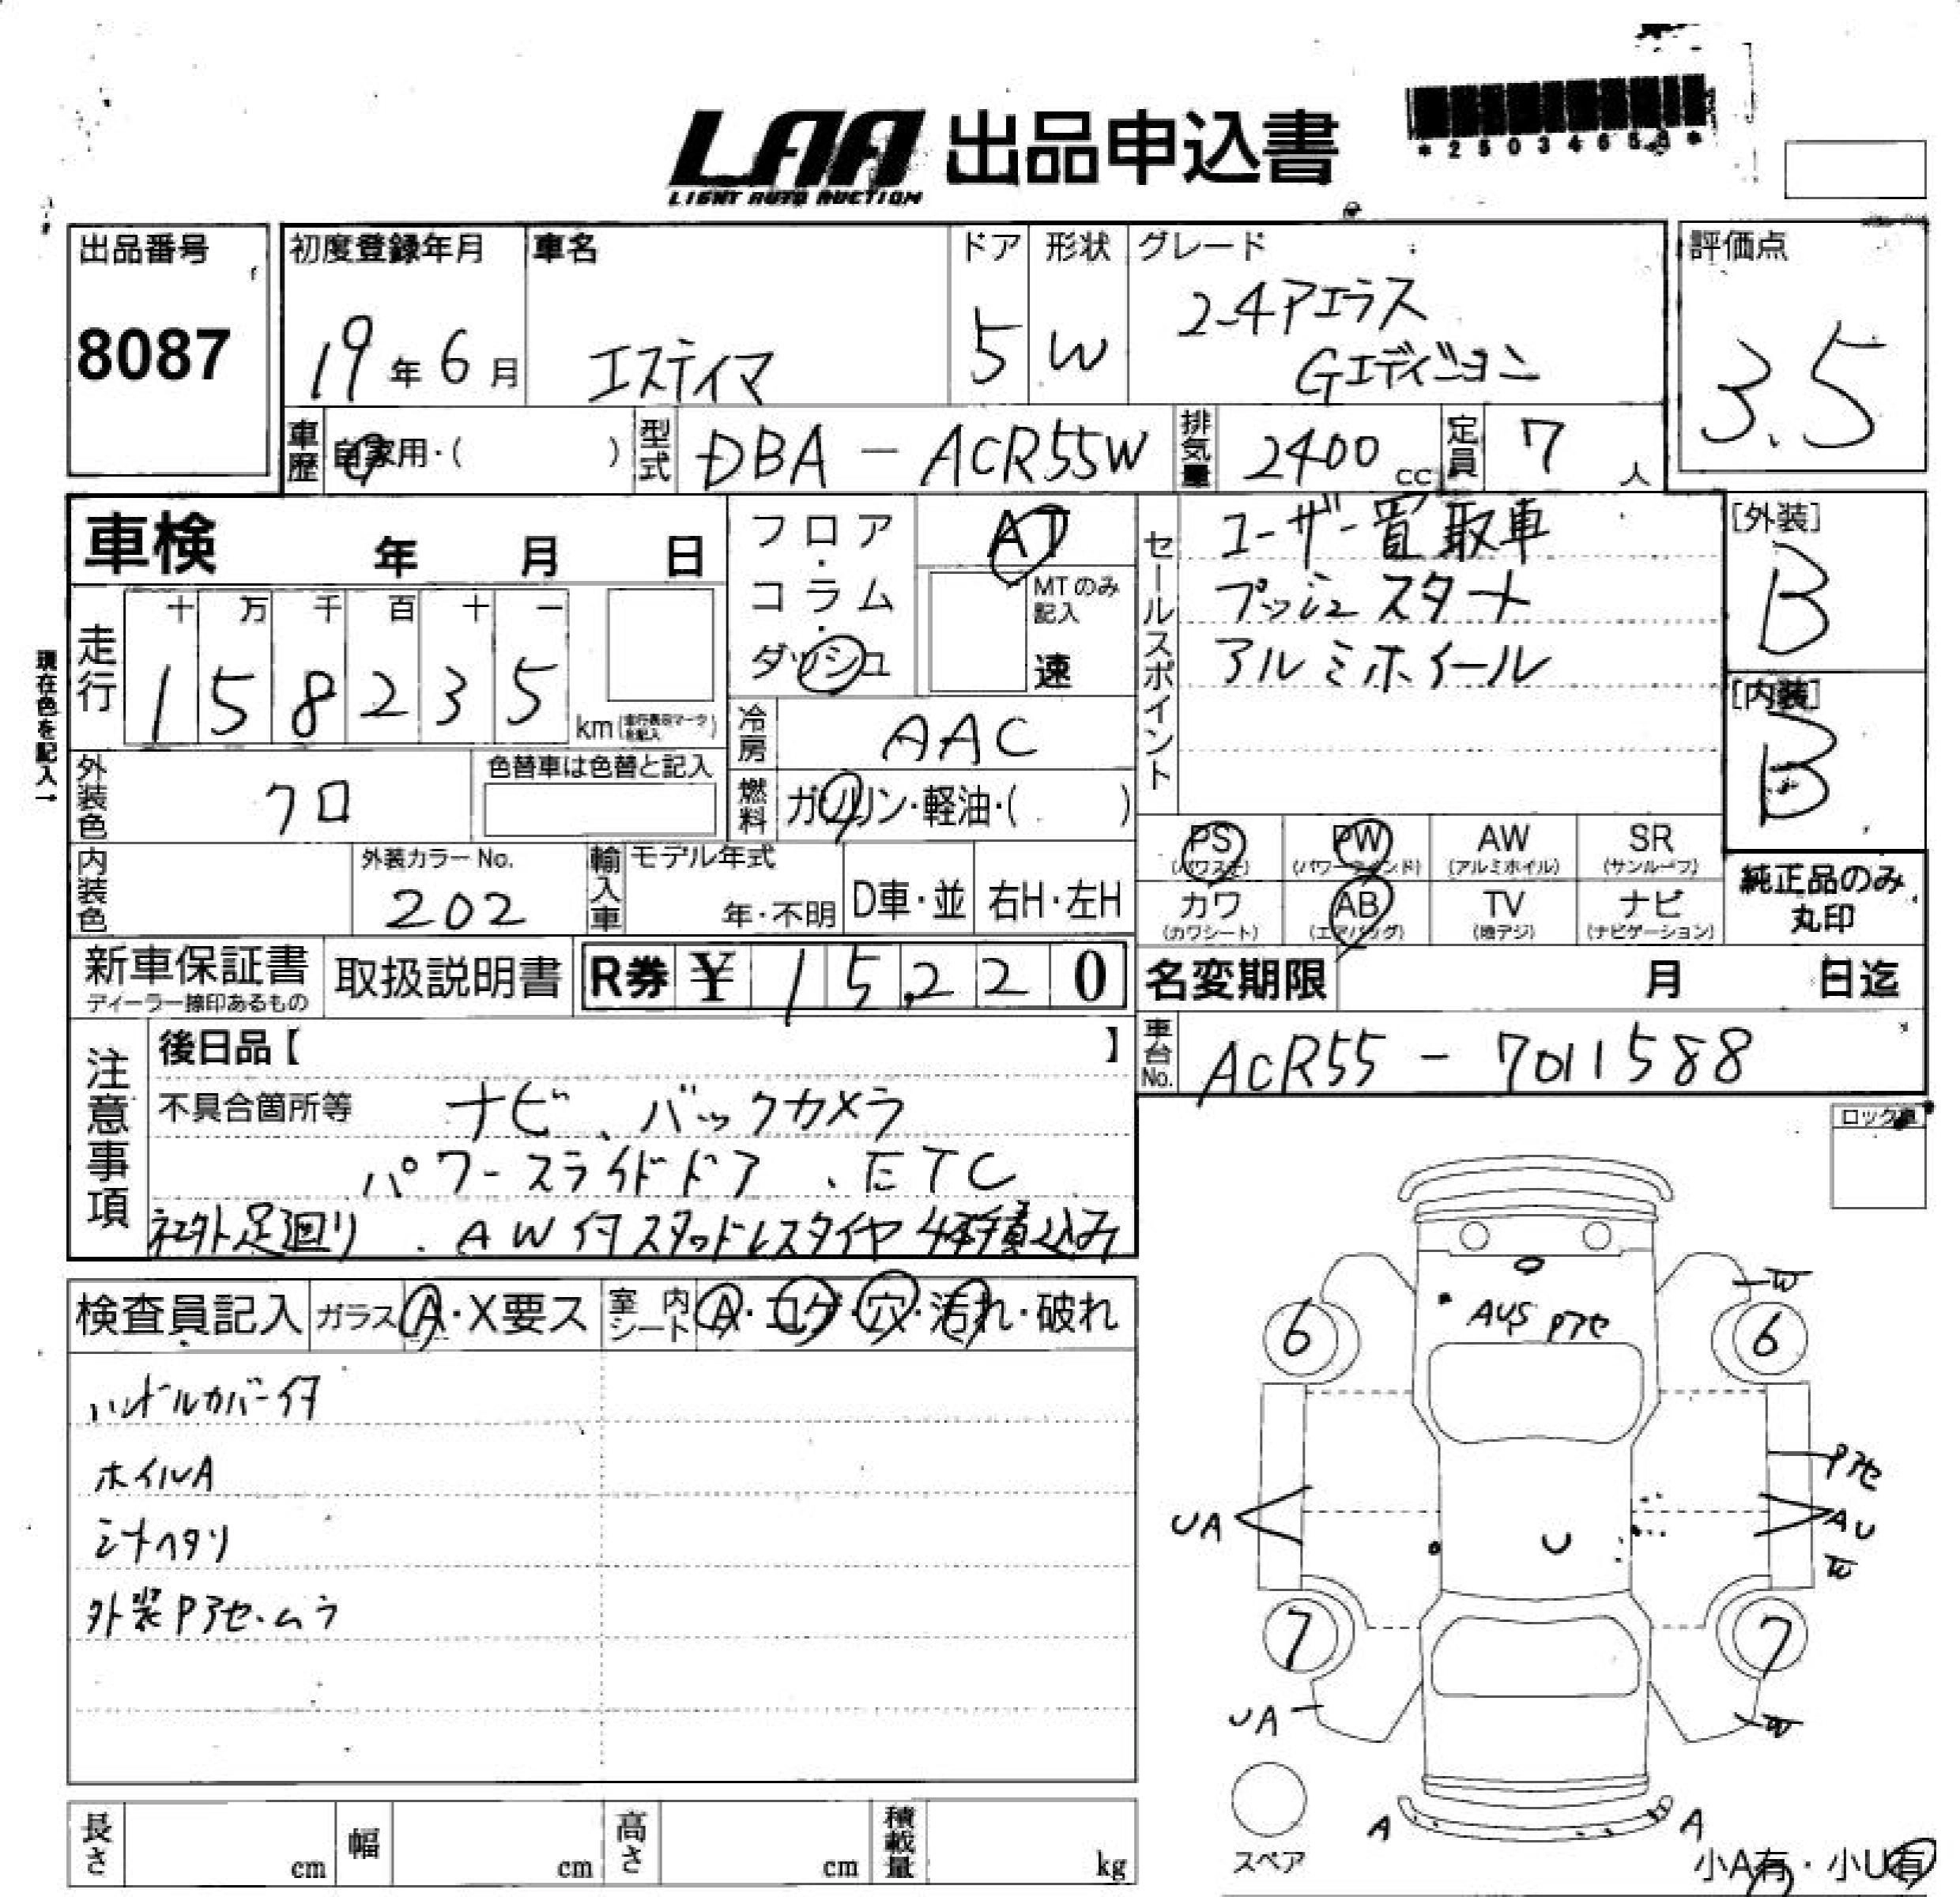 LAA 出品申込書
LIGHT AUTO AUCTION
出品番号
8087
初度登録年月
19年6月
車名
エスティマ
ドア
5
形状
W
グレード
2-4アエラス
Gエディション
評価点
3.5
車歴
自家用・( )
型式
DBA-ACR55W
排気量
2400cc
定員
7人
車検 年 月 日
フロア・コラム・ダッシュ
AT
MTのみ記入
速
セールスポイント
ユーザー買取車
プッシュスタート
アルミホイール
[外装]
B
[内装]
B
現在色を記入→
走行
十 万 千 百 十 一
1 5 8 2 3 5 km
冷房
AAC
外装色
クロ
色替車は色替と記入
燃料
ガソリン・軽油・( )
内装色
外装カラーNo.
202
輸入車
モデル年式
年・不明
D車・並
右H・左H
PS (パワステ)
PW (パワーウインド)
AW (アルミホイル)
SR (サンルーフ)
カワ (カワシート)
AB (エアバッグ)
TV (地デジ)
ナビ (ナビゲーション)
純正品のみ
丸印
新車保証書
ディーラー捺印あるもの
取扱説明書
R券 ¥ 15,220
名変期限 月 日迄
車台No.
ACR55-7011588
注意事項
後日品【 】
不具合箇所等
ナビ、バックカメラ
パワースライドドア、ETC
社外足廻り、AW付スタッドレスタイヤ4本積込み
ロック車
検査員記入
ガラス A・X要ス
室内シート A・コゲ・穴・汚れ・破れ
ハンドルカバー付
ホイルA
シートヘタリ
外装Pアセ・ムラ
W
6
AUS Pアセ
6
Pアセ
UA
U
AU
W
7
7
UA
W
スペア
A
A
小A有・小U有
長さ cm
幅 cm
高さ cm
積載量 kg